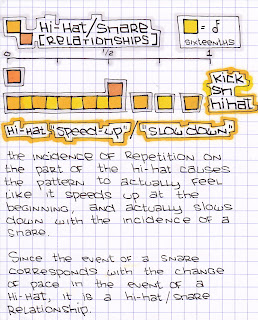 Hi-Hat/Snare
[Relationships]
= ♪
sixteenths
0 1/2 1
Kick
Sn
Hihat
Hi-Hat "Speed-up"/"Slow down"
the incidence of Repetition on
the part of the hi-hat causes
the pattern to actually feel
like it speeds up at the
beginning, and actually slows
down with the incidence of a
snare.
Since the event of a snare
corresponds with the change
of pace in the event of a
Hi-Hat, it is a hi-hat/snare
Relationship.